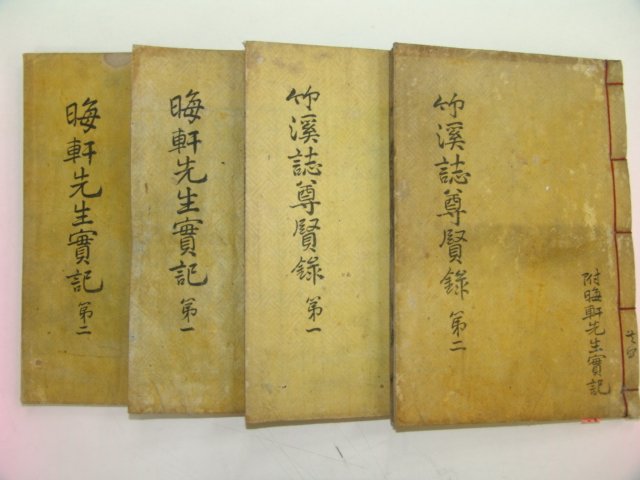 竹溪誌尊賢錄 第二
附晦軒先生實記
共四
竹溪誌尊賢錄 第一
晦軒先生實記 第一
晦軒先生實記 第二